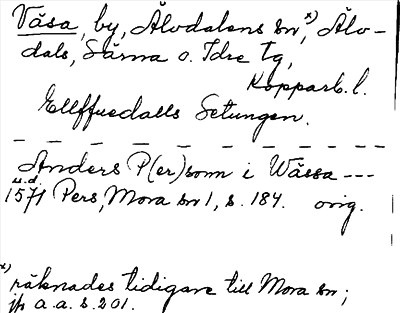 Våsa, by, Älvdalens sn, x) Älv-
dals, Särna o. Idre tg,
Kopparb. l.
Ellffuedalls Setungen.
Anders P(er)som i Wåssa ---
u.d.
1571 Pers, Mora sn 1, s. 184. orig.
x) räknades tidigare till Mora sn;
jfr a.a. s. 201.